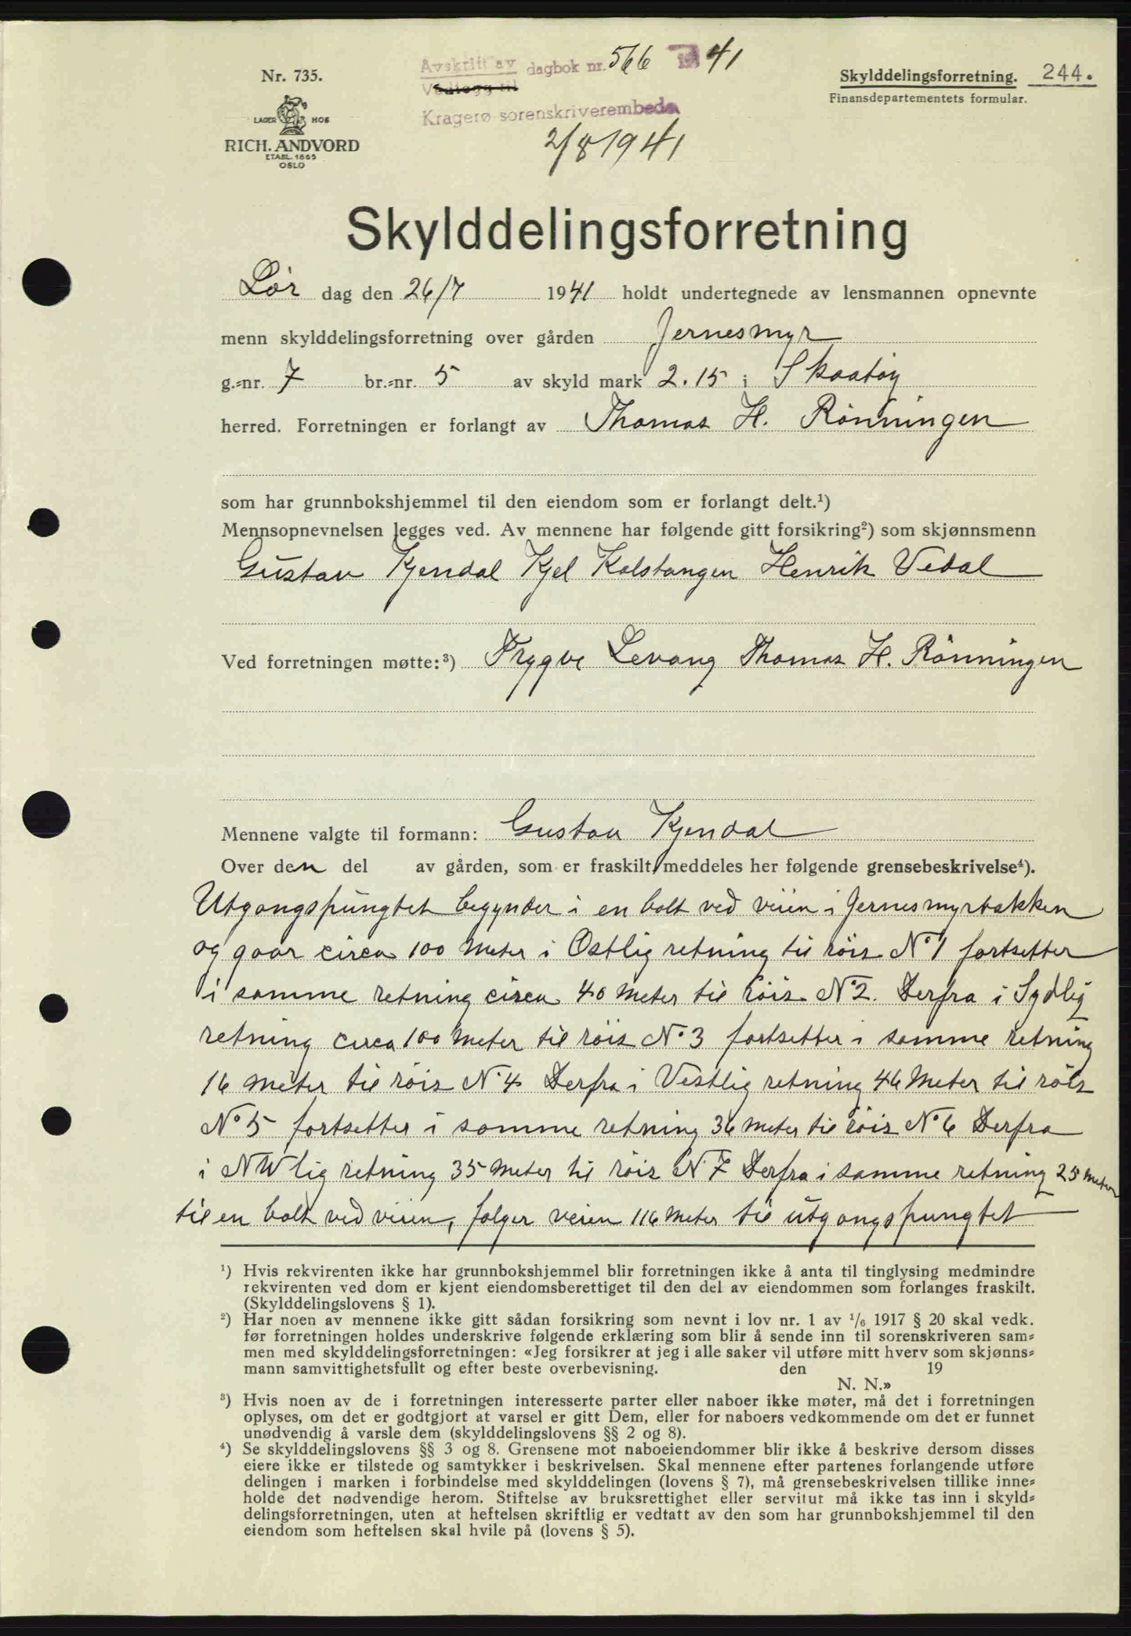 Nr. 735.
LAGER HOS
RICH. ANDVORD
ETABL. 1865
OSLO
Avskrift av dagbok nr. 566 1941
Vedlegg til
Kragerø sorenskriverembede
2/8 1941
Skylddelingsforretning. 244.
Finansdepartementets formular.
Skylddelingsforretning
Lør dag den 26/7 1941 holdt undertegnede av lensmannen opnevnte
menn skylddelingsforretning over gården Jernesmyr
g.=nr. 7 br.=nr. 5 av skyld mark 2.15 i Skaatøy
herred. Forretningen er forlangt av Thomas H. Rønningen
som har grunnbokshjemmel til den eiendom som er forlangt delt.¹)
Mennsopnevnelsen legges ved. Av mennene har følgende gitt forsikring²) som skjønnsmenn
Gustav Kjendal Kjel Kalstangen Henrik Vedal
Ved forretningen møtte:³) Trygve Levang Thomas H. Rønningen
Mennene valgte til formann: Gustav Kjendal
Over den del av gården, som er fraskilt, meddeles her følgende grensebeskrivelse⁴).
Utgangspungtet begynder i en bolt ved veien i Jernesmyrbakken
og gaar circa 100 Meter i Østlig retning til röis No 1 fortsetter
i samme retning circa 40 Meter til röis No 2. Derfra i Sydlig
retning circa 100 Meter til röis No 3 fortsetter i samme retning
16 Meter til röis No 4 Derfra i Vestlig retning 46 Meter til röis
No 5 fortsetter i samme retning 36 Meter til röis No 6 Derfra
i NWlig retning 35 Meter til röis N 7 Derfra i samme retning 25 Meter
til en bolt ved veien, følger veien 116 Meter til utgangspungtet
¹) Hvis rekvirenten ikke har grunnbokshjemmel blir forretningen ikke å anta til tinglysing medmindre
rekvirenten ved dom er kjent eiendomsberettiget til den del av eiendommen som forlanges fraskilt.
(Skylddelingslovens § 1).
²) Har noen av mennene ikke gitt sådan forsikring som nevnt i lov nr. 1 av 1/6 1917 § 20 skal vedk.
før forretningen holdes underskrive følgende erklæring som blir å sende inn til sorenskriveren sam=
men med skylddelingsforretningen: «Jeg forsikrer at jeg i alle saker vil utføre mitt hverv som skjønns=
mann samvittighetsfullt og efter beste overbevisning. den 19
N. N.»
³) Hvis noen av de i forretningen interesserte parter eller naboer ikke møter, må det i forretningen
oplyses, om det er godtgjort at varsel er gitt Dem, eller for naboers vedkommende om det er funnet
unødvendig å varsle dem (skylddelingslovens §§ 2 og 8).
⁴) Se skylddelingslovens §§ 3 og 8. Grensene mot naboeiendommer blir ikke å beskrive dersom disses
eiere ikke er tilstede og samtykker i beskrivelsen. Skal mennene efter partenes forlangende utføre
delingen i marken i forbindelse med skylddelingen (lovens § 7), må grensebeskrivelsen tillike inne=
holde det nødvendige herom. Stiftelse av bruksrettighet eller servitut må ikke tas inn i skyld=
delingsforretningen, uten at heftelsen skriftlig er vedtatt av den som har grunnbokshjemmel til den
eiendom som heftelsen skal hvile på (lovens § 5).